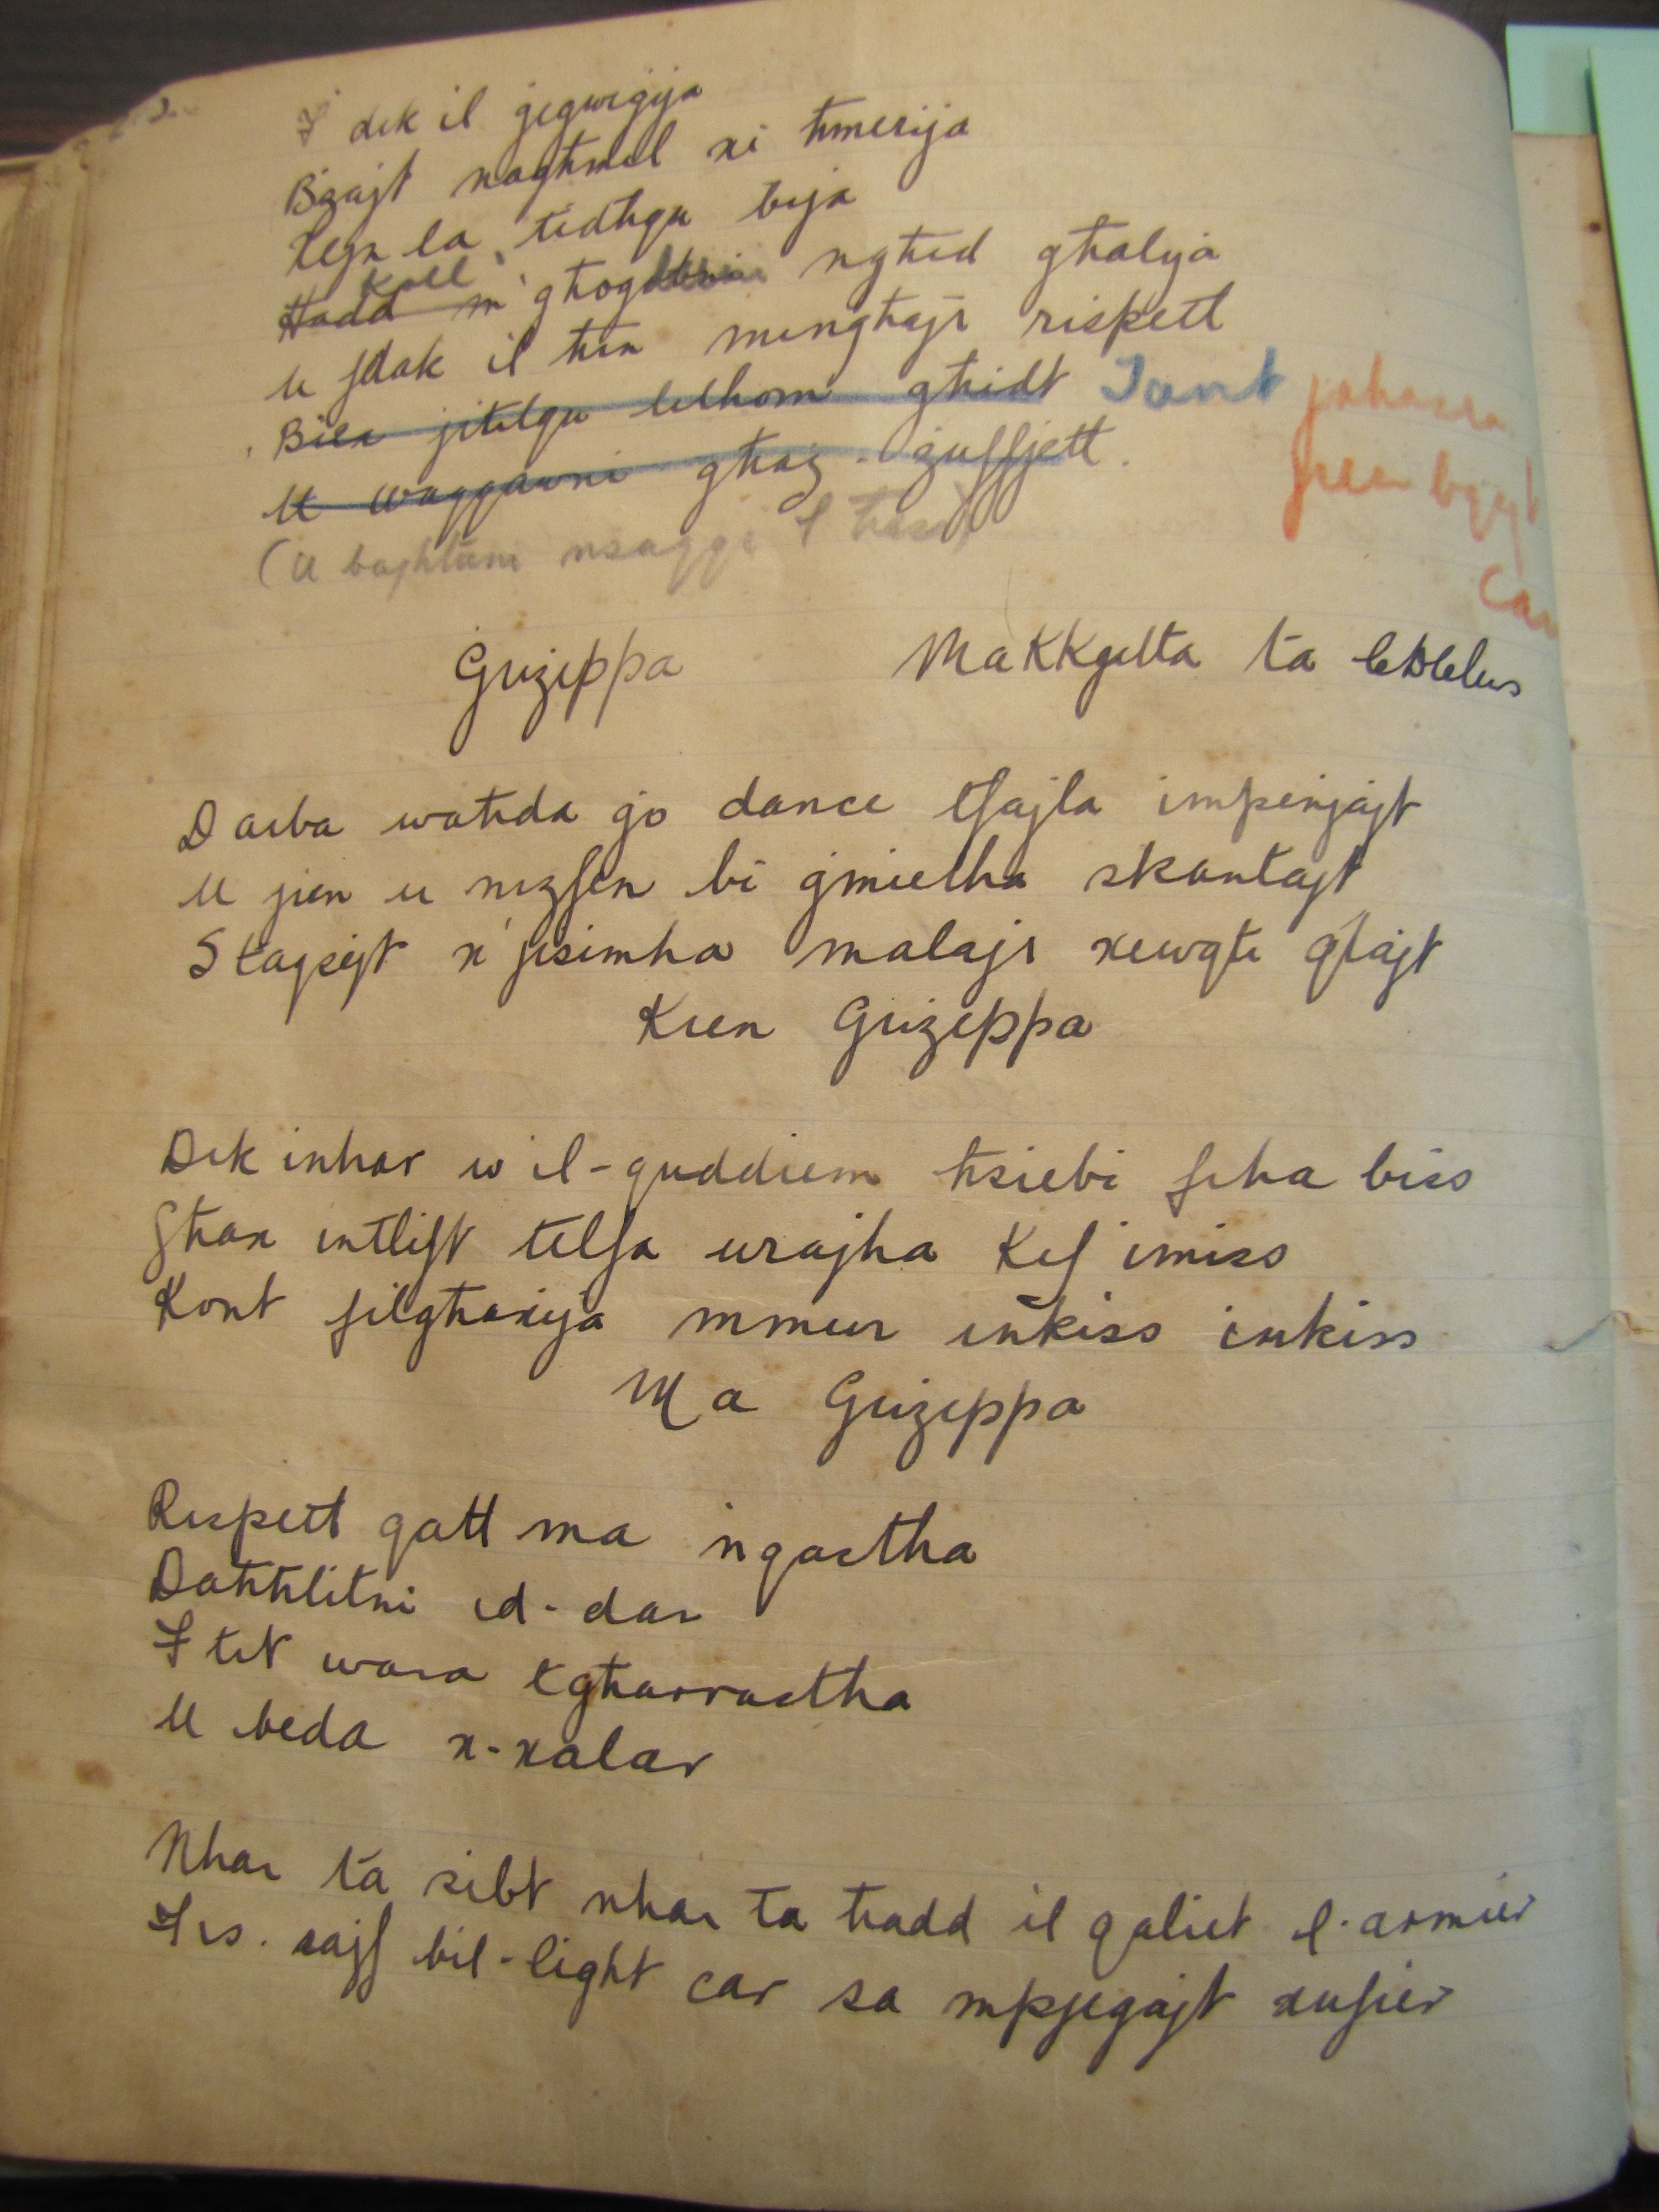 F' dik il ġegwiġija
Bżajt nagħmel xi ħmerija
Kejn la tidħqu bija
Kull
Hadd m' għoġ ngħid għalija
U f'dak il ħin mingħajr rispett
Bdew jitilqu lelhom għidt Jant
U waqqawni għaż-żuffjett.
(U bagħtuni nsaqqi l
Ġużeppa Makkjetta ta
Darba waħda ġo dance tfajla impenjajt
U jien u niżfen bi ġmielha skantajt
Staqsejt x' jisimha malajr xewqti qtajt
Kien Ġużeppa
Dik inhar w il-quddiem ħsiebi fiha biss
Għax intlift tilfa wrajha kif imiss
Kont filgħaxija mmur inkiss inkiss
Ma Ġużeppa
Rispett qatt ma nqastha
Daħħlitni id-dar
F'tit wara tgħarrastha
U beda x-xalar
Nhar ta sibt nhar ta ħadd il qaliet l-armier
Fis-sajf bil-light car sa mpjegajt xufier